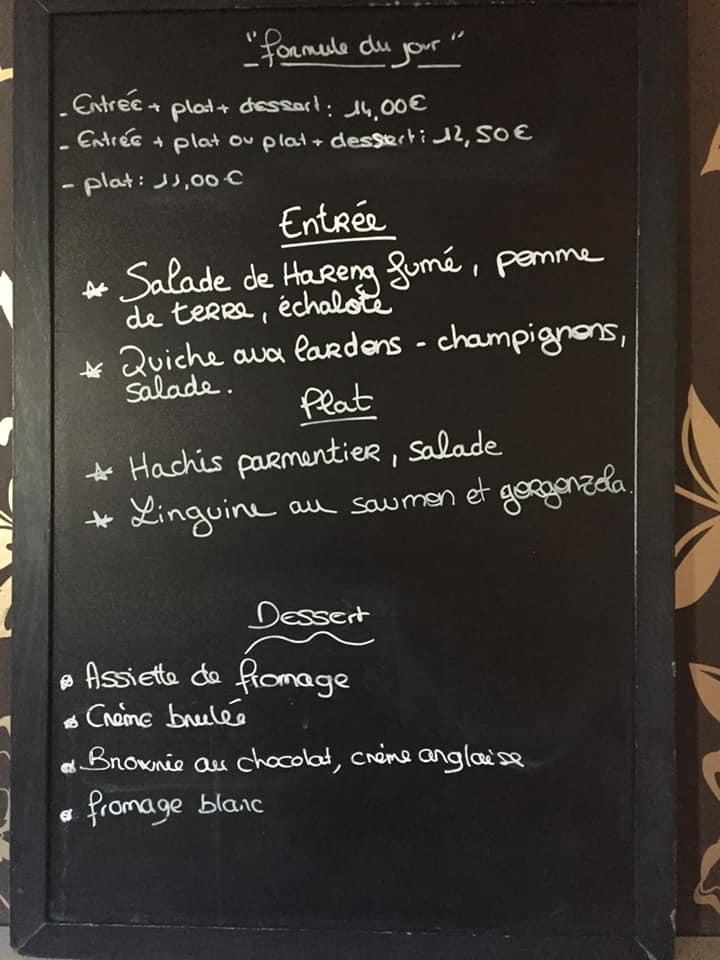 "formule du jour"
- Entrée + plat + dessert : 14,00€
- Entrée + plat ou plat + dessert : 12,50€
- plat : 11,00€
Entrée
* Salade de Hareng fumé, pomme
de terre, échalote
* Quiche aux lardons - champignons,
salade.
Plat
* Hachis parmentier, salade
* Linguine au saumon et gorgonzola.
Dessert
* Assiette de fromage
* Crème brulée
* Brownie au chocolat, crème anglaise
* fromage blanc